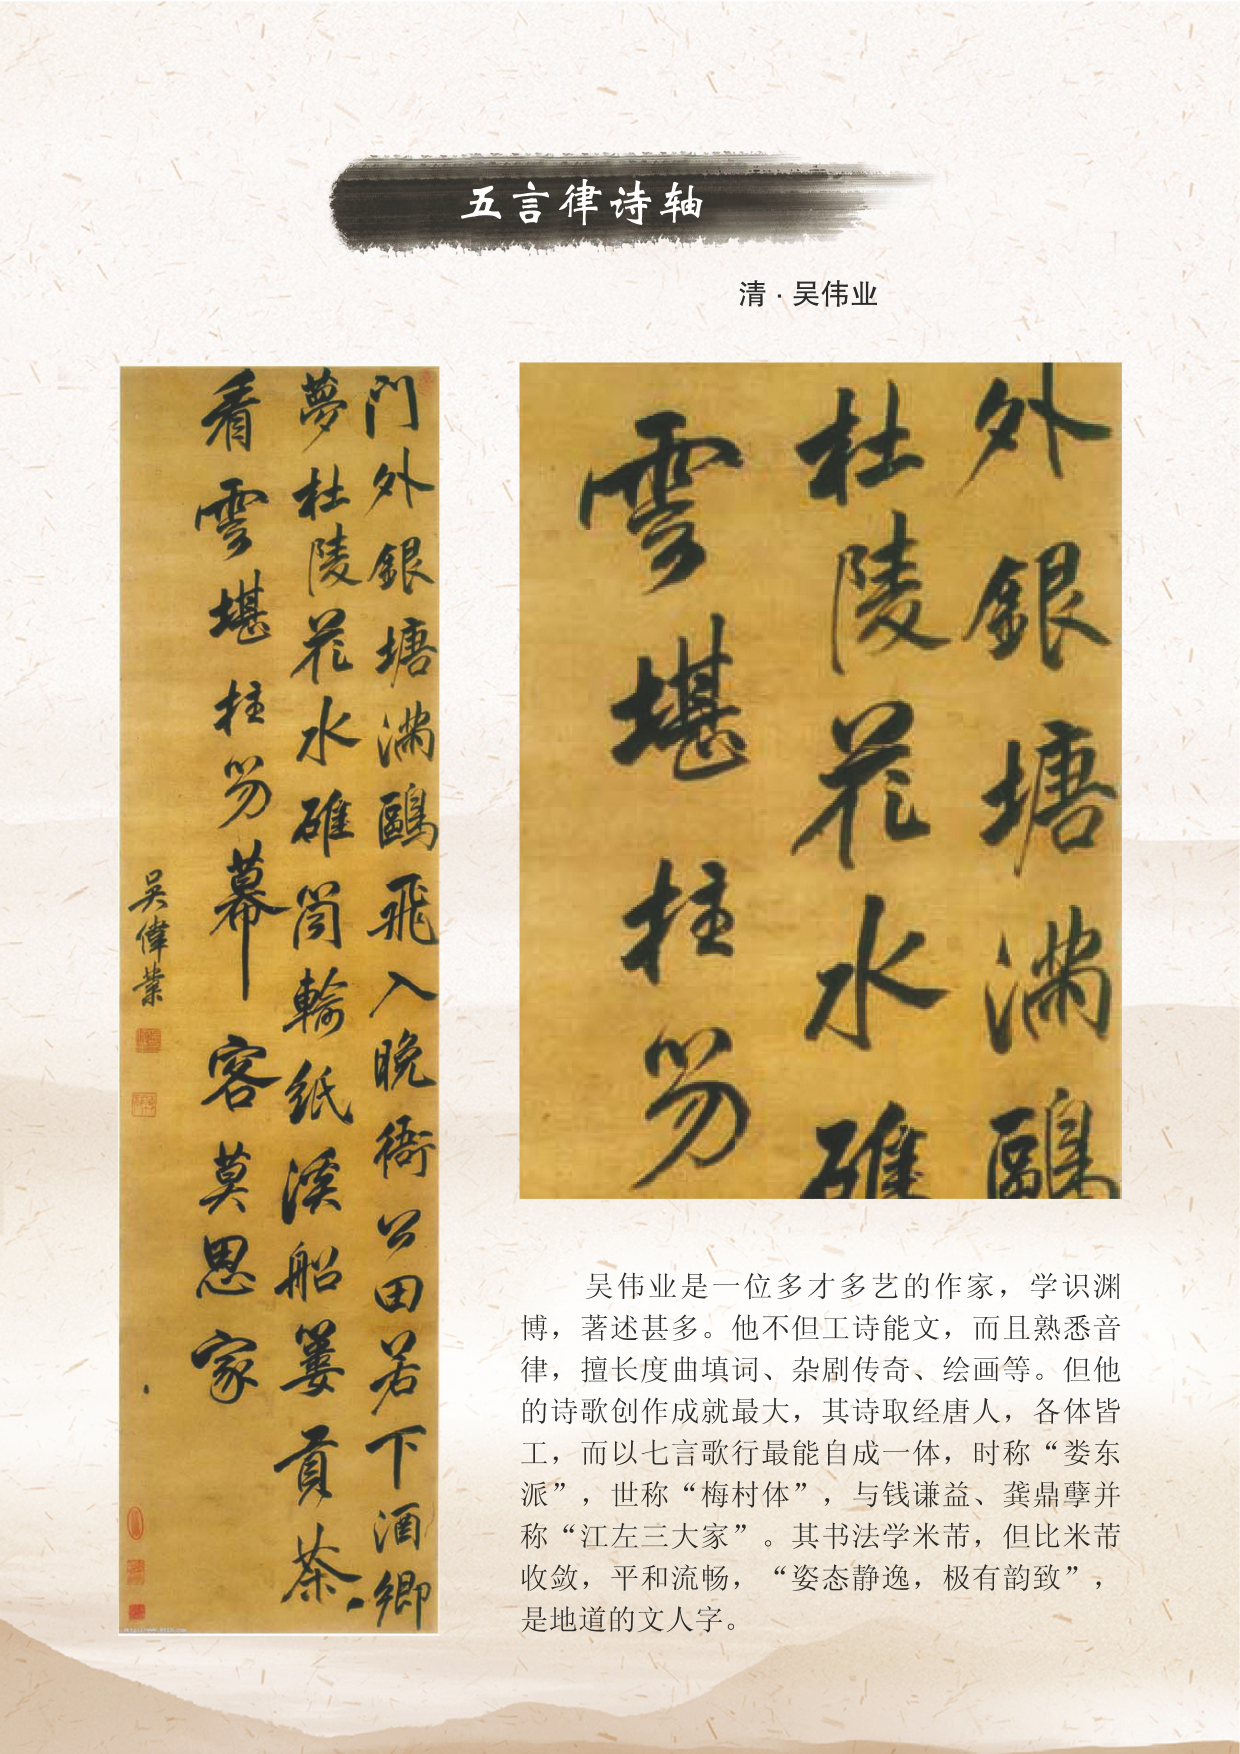 五言律诗轴
清·吴伟业
門外銀塘滿鷗飛入晚衙公田若下酒鄉
夢杜陵花水碓筒輪紙溪船簍貢茶
看雲堪拄笏幕客莫思家
吳偉業
外銀塘滿鷗
杜陵花水碓
雲堪拄笏
吴伟业是一位多才多艺的作家，学识渊
博，著述甚多。他不但工诗能文，而且熟悉音
律，擅长度曲填词、杂剧传奇、绘画等。但他
的诗歌创作成就最大，其诗取经唐人，各体皆
工，而以七言歌行最能自成一体，时称“娄东
派”，世称“梅村体”，与钱谦益、龚鼎孽并
称“江左三大家”。其书法学米芾，但比米芾
收敛，平和流畅，“姿态静逸，极有韵致”，
是地道的文人字。